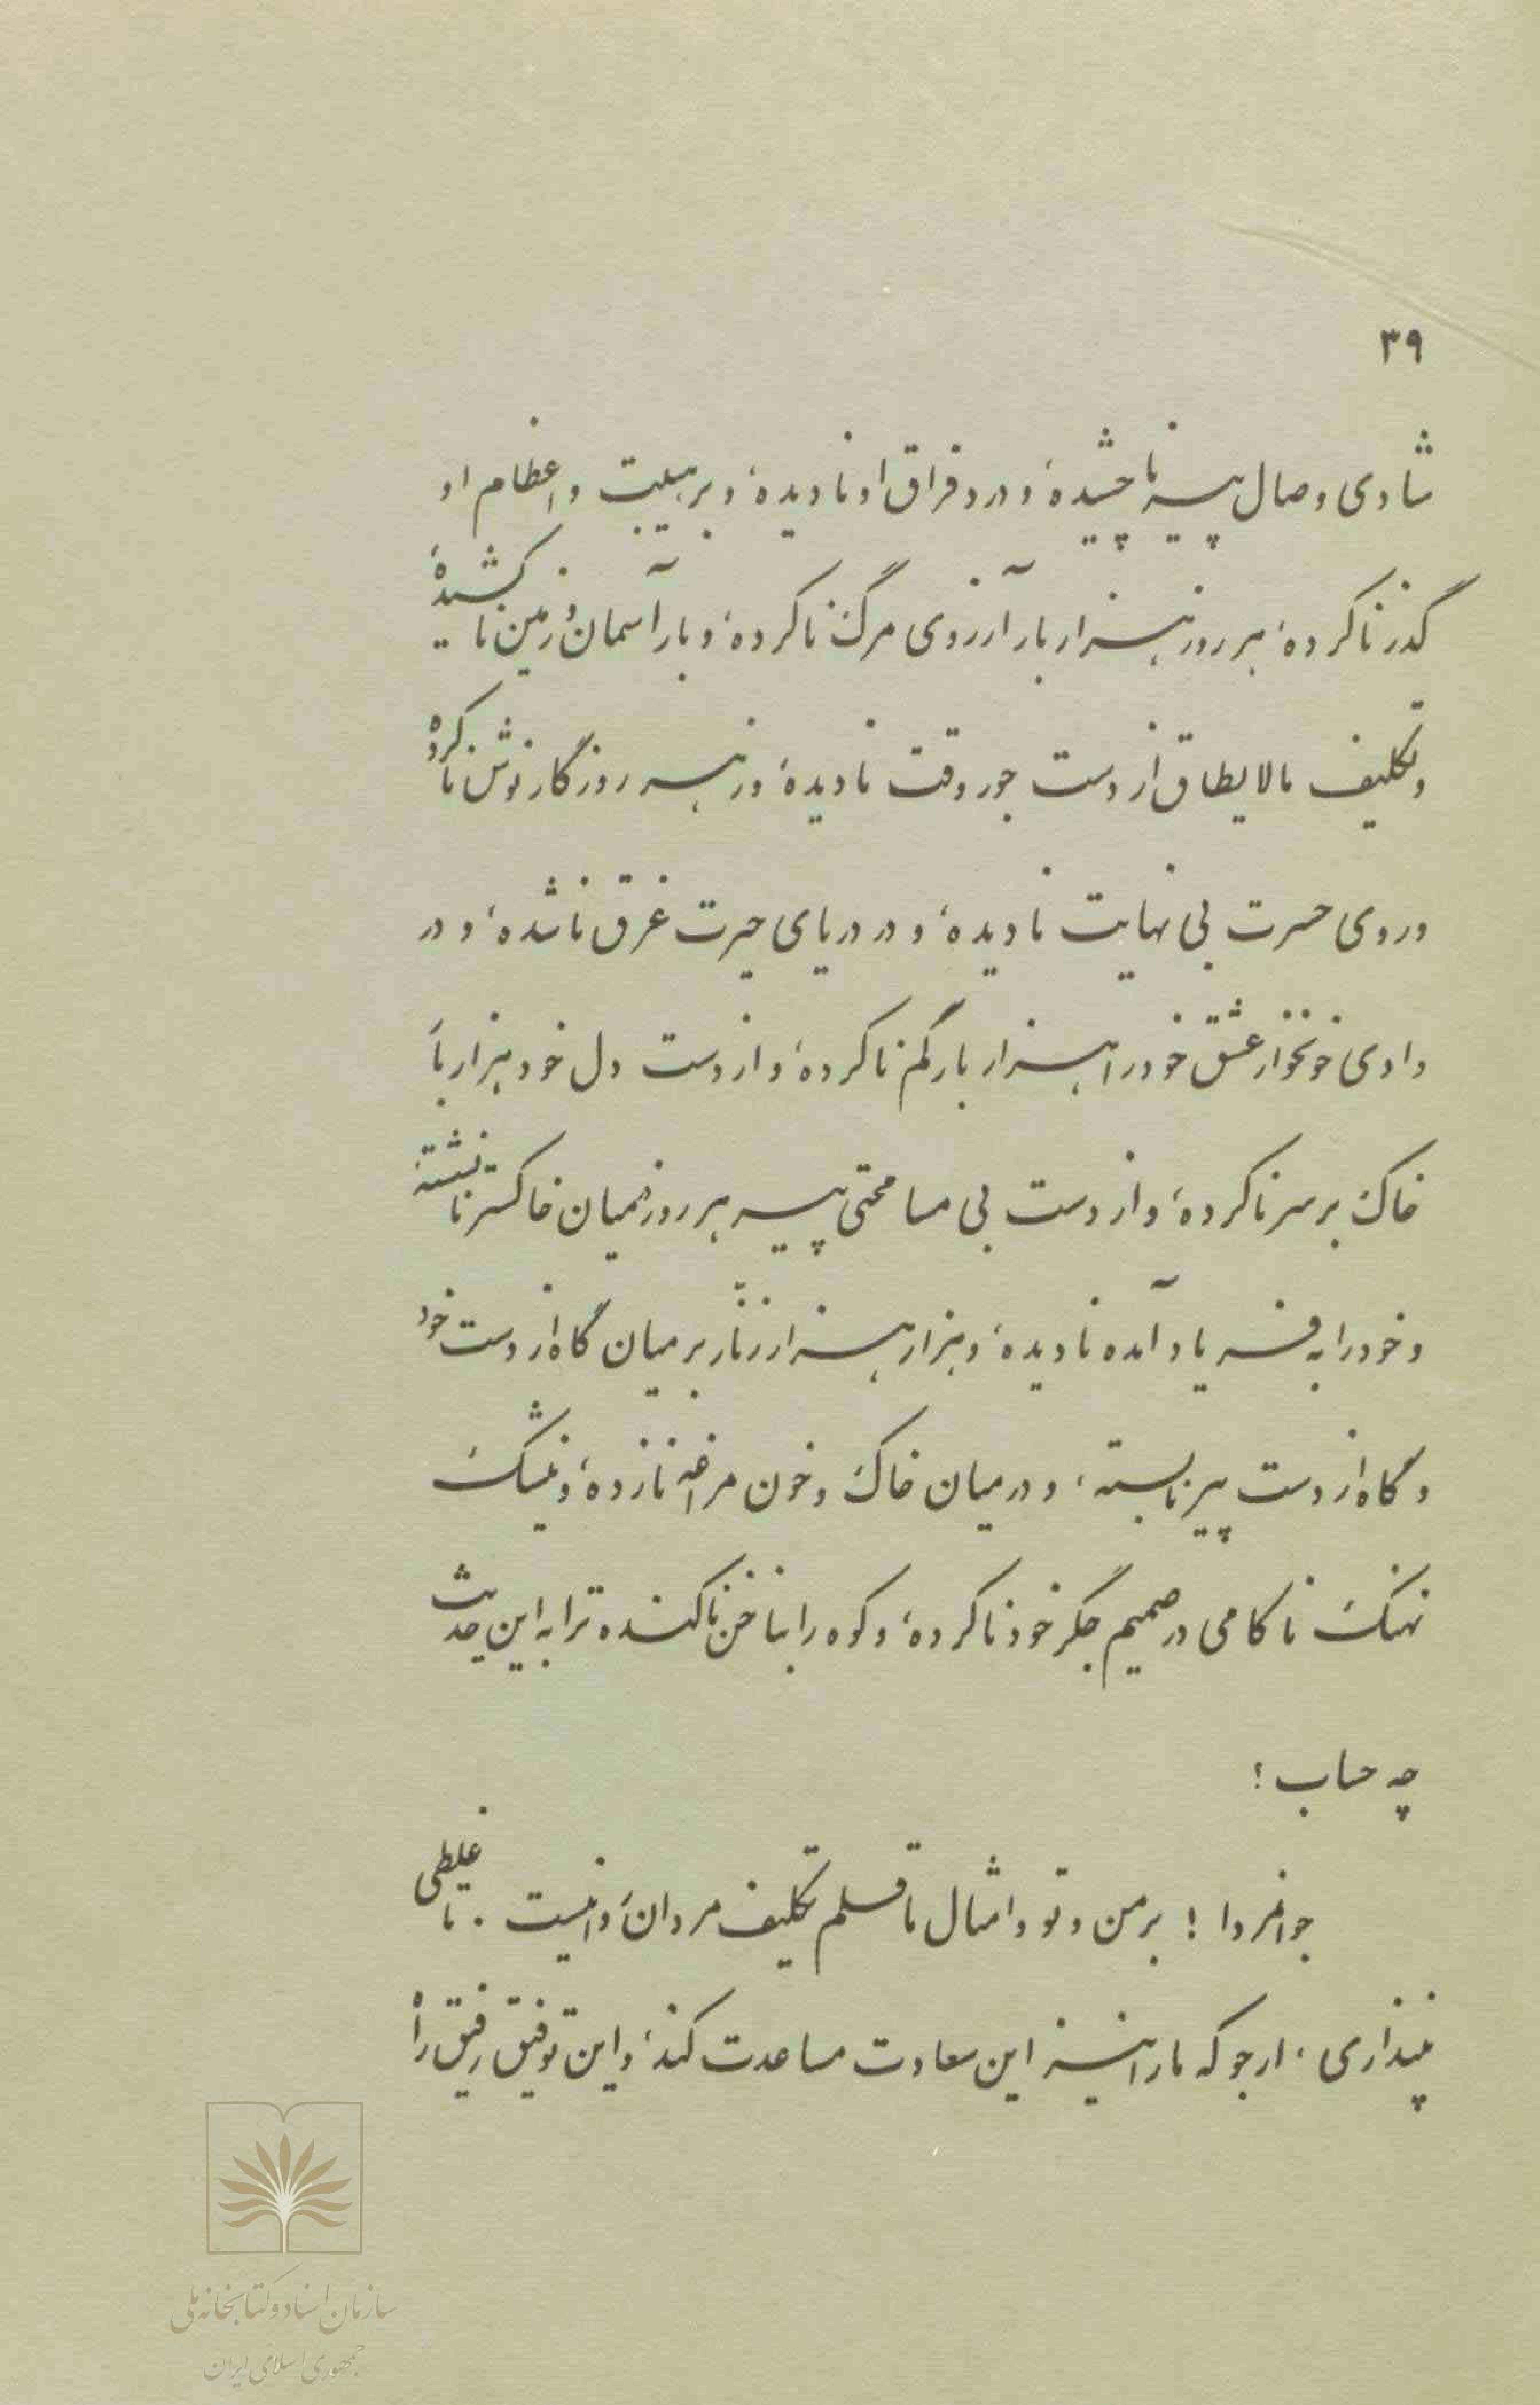 ۳۹
شادی وصال پیر ناچشیده، و درد فراق او نادیده، و بر هیبت و اعظام او
گذر ناکرده، هر روز هزار بار آرزوی مرگ ناکرده، و بار آسمان و زمین ناکشیده،
و تکلیف مالایطاق از دست جور وقت نادیده، و زهر روزگار نوش ناکرده
و روی حسرت بی نهایت نادیده، و در دریای حیرت غرق ناشده، و در
وادی خونخوار عشق خود را هزار بار گم ناکرده، و از دست دل خود هزار بار
خاک بر سر ناکرده، و از دست بی مسامحتی پیر هر روز در میان خاکستر نانشسته،
و خود را به فریاد آمده نادیده، و هزار هزار زنار بر میان گاه از دست خود
و گاه از دست پیر نابسته، و در میان خاک و خون مراغه نازده، و نیشک
نهنک ناکامی در صمیم جگر خود ناکرده، و کوه را بناخن ناکنده ترا به این حدیث
چه حساب؟
جوانمردا! بر من و تو و امثال ما قلم تکلیف مردان روا نیست. تا غلطی
نپنداری، ارجو که ما را نیز این سعادت مساعدت کند، و این توفیق رفیق راه
سازمان اسناد و کتابخانه ملی
جمهوری اسلامی ایران